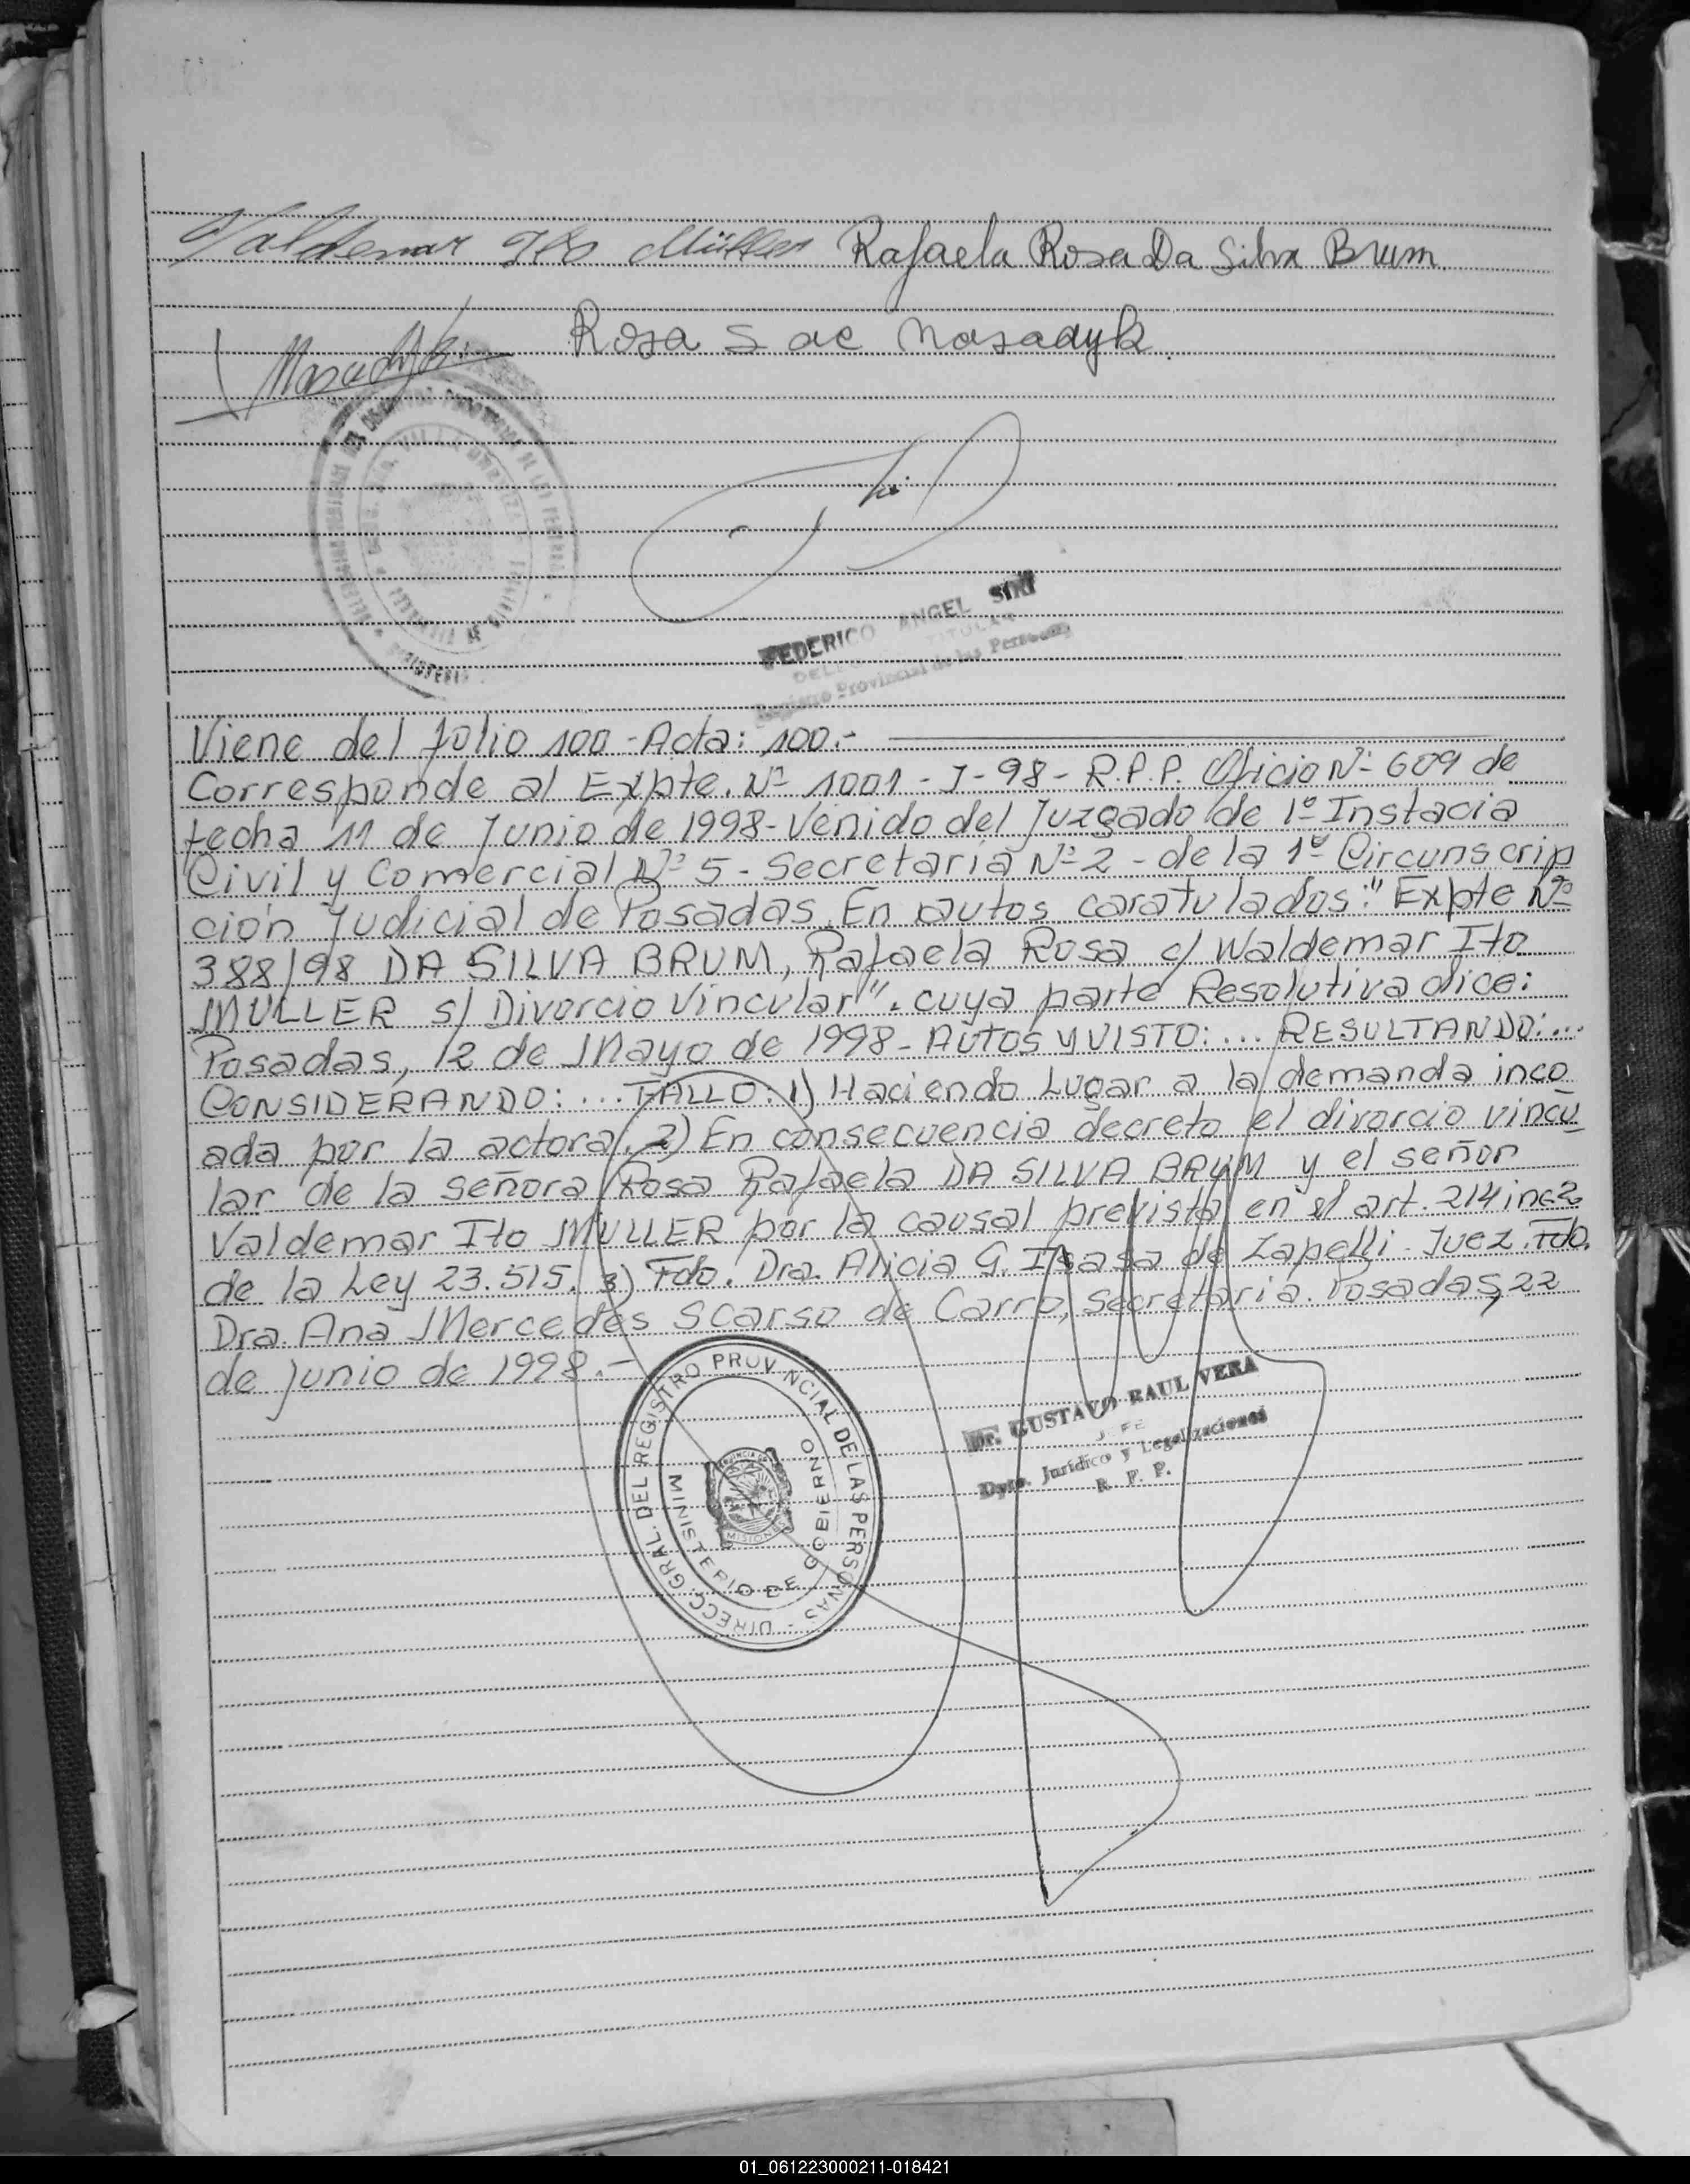 Valdemar Ito Müller Rafaela Rosa Da Silva Brum
Rosa S ac Masadyk
Masadyk
FEDERICO ANGEL SIRI
TITULAR
Registro Provincial de las Personas
Viene del folio 100 - Acta: 100.-
Corresponde al Expte. Nº 1001 - J - 98 - R.P.P. Oficio Nº 609 de
fecha 11 de Junio de 1998 - Venido del Juzgado de 1º Instacia
Civil y Comercial Nº 5 - Secretaria Nº 2 - de la 1º Circunscrip
ción Judicial de Posadas. En autos caratulados: "Expte Nº
388/98 DA SILVA BRUM, Rafaela Rosa c/ Waldemar Ito
MULLER s/ Divorcio Vincular". cuya parte Resolutiva dice:
Posadas, 12 de Mayo de 1998 - AUTOS Y VISTO: ... RESULTANDO: ...
CONSIDERANDO: ... FALLO: 1) Haciendo Lugar a la demanda inco
ada por la actora. 2) En consecuencia decreto el divorcio vincu
lar de la señora Rosa Rafaela DA SILVA BRUM y el señor
Valdemar Ito MULLER por la causal prevista en el art. 214 inc 2
de la Ley 23.515. 3) Fdo. Dra. Alicia G. Isasa de Zapelli - Juez. Fdo.
Dra. Ana Mercedes Scarso de Carro, Secretaria. Posadas, 22
de Junio de 1998.-
DIRECC. GRAL. DEL REGISTRO PROVINCIAL DE LAS PERSONAS -
MINISTERIO DE GOBIERNO
MISIONES
Dr. GUSTAVO RAUL VERA
JEFE
Dpto. Jurídico y Legalizaciones
R. P. P.
01_061223000211-018421